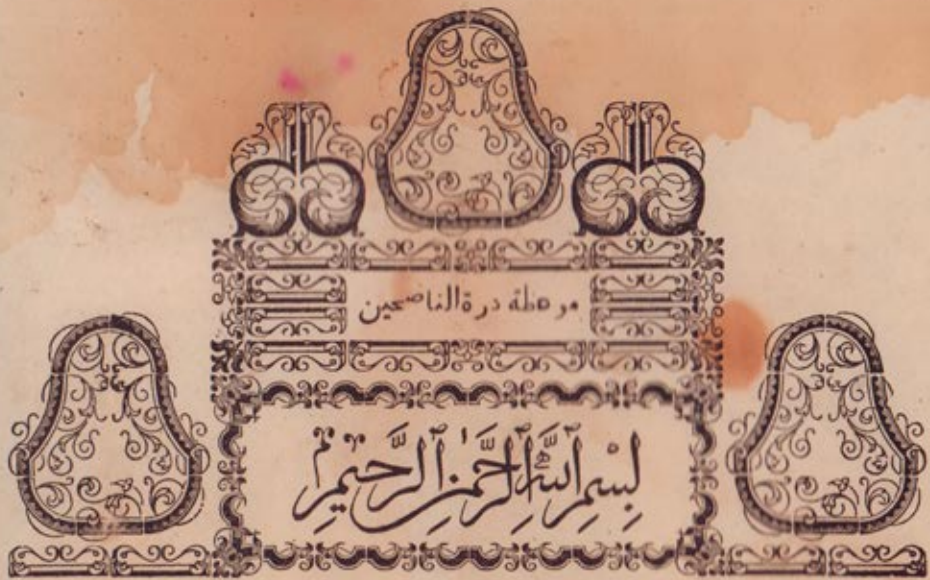 موعظة درة الناصحين
بِسْمِ ٱللَّهِ ٱلرَّحْمَٰنِ ٱلرَّحِيمِ